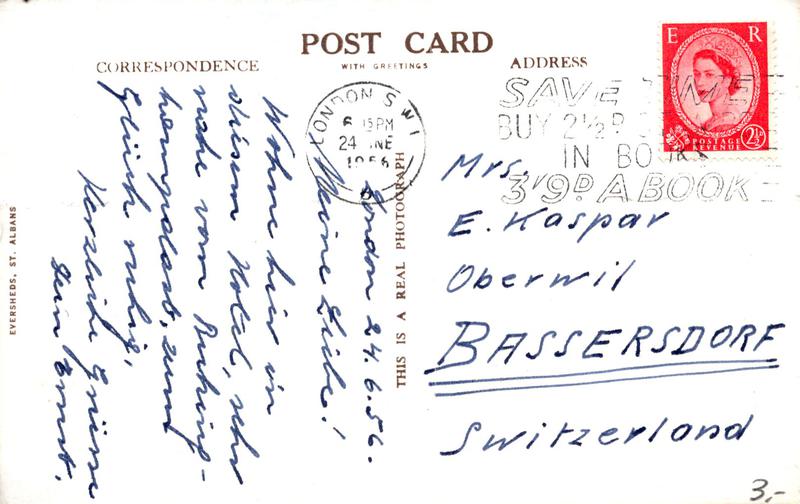 POST CARD
WITH GREETINGS
CORRESPONDENCE
ADDRESS
London 24.6.56.
Meine Liebe!
Wohne hier in
diesem Hotel, sehr
nahe vom Buking-
hampalast, zum
Glück ruhig,
Herzliche Grüsse
Dein Ernst.
LONDON S.W.1
6 15 PM
24 JNE
1956
E R
POSTAGE
REVENUE
2½D
SAVE TIME
BUY 2½D
IN BOOKS
3'9D A BOOK
Mrs.
E. Kaspar
Oberwil
BASSERSDORF
Switzerland
THIS IS A REAL PHOTOGRAPH
EVERSHEDS, ST. ALBANS
3,-